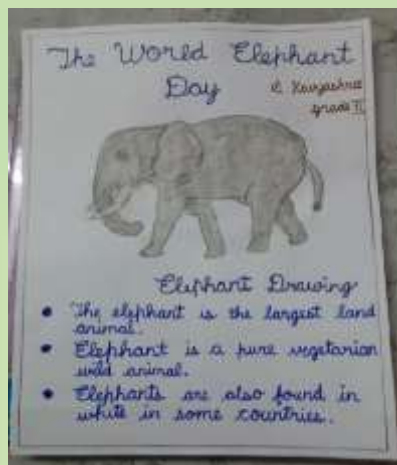 The World Elephant
Day
C. Kavyashree
grade II
Elephant Drawing
• The elephant is the largest land
animal.
• Elephant is a pure vegetarian
wild animal.
• Elephants are also found in
white in some countries.